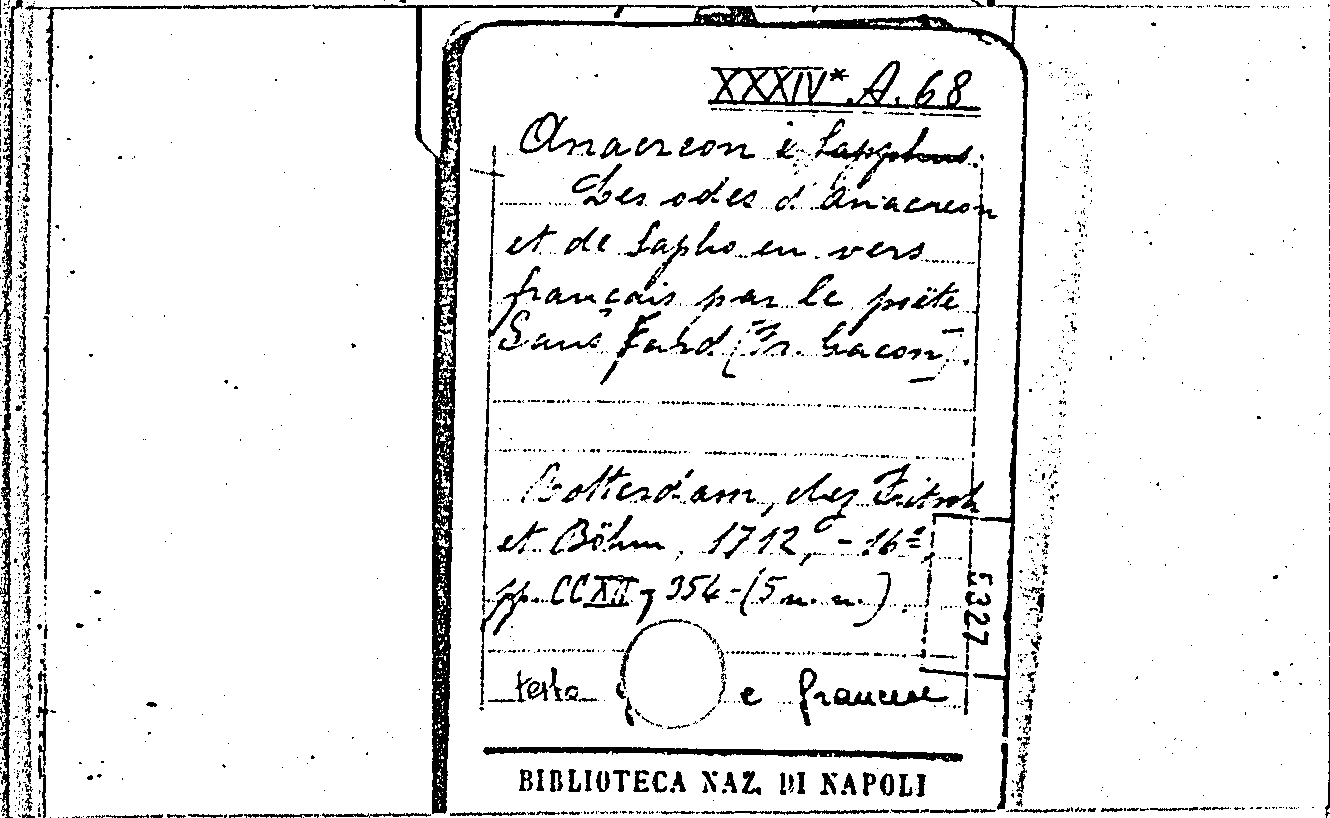 XXXIV* A. 68
Anacreon e Sapphus.
Les odes d'Anacreon
et de Sapho en vers
français par le poëte
Sans Fard (Fr. Gacon).
Rotterdam, chez Fritsch
et Böhm, 1712, - 16°
pp. CCXII, 354 - (5 n. n.).
5327
testo e francese
BIBLIOTECA NAZ. DI NAPOLI